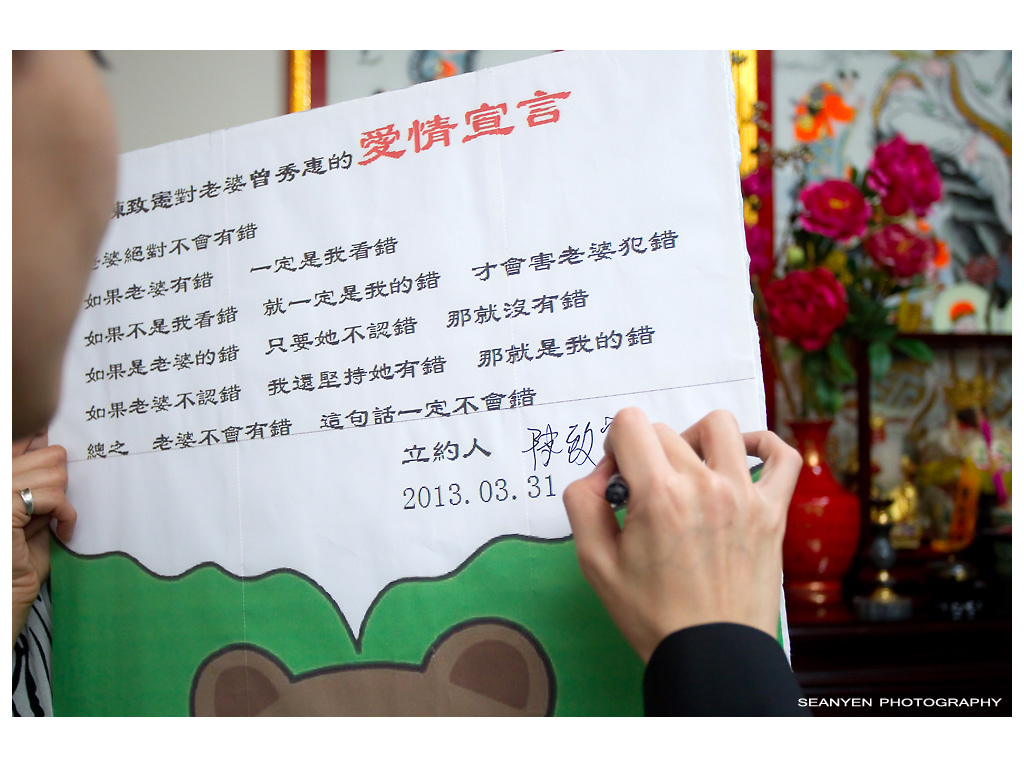 陳致憲對老婆曾秀惠的愛情宣言
老婆絕對不會有錯
如果老婆有錯 一定是我看錯
如果不是我看錯 就一定是我的錯 才會害老婆犯錯
如果是老婆的錯 只要她不認錯 那就沒有錯
如果老婆不認錯 我還堅持她有錯 那就是我的錯
總之 老婆不會有錯 這句話一定不會錯
立約人 陳致
2013.03.31
SEANYEN PHOTOGRAPHY